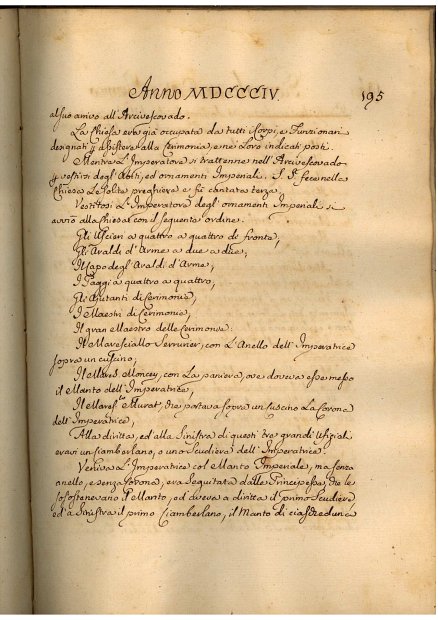 Anno MDCCCIV. 195
al suo arrivo all'Arcivescovado.
La Chiesa era già occupata da tutti i Corpi, e Funzionarj
designati p assistere alla Cerimonia, e ne loro indicati posti.
Mentre L'Imperatore si trattenne nell'Arcivescovado
p vestirsi degl'Abiti, ed ornamenti Imperiali. S. S. fece nella
Chiesa Le solite preghiere e fù cantata terza,
Vestitosi L'Imperatore degl'ornamenti Imperiali si
avviò alla Chiesa con il seguente ordine.
Gli Uscieri a quattro a quattro di fronte,
Gli Araldi d'Arme a due a due,
Il Capo degl'Araldi d'Arme,
I Paggi a quattro a quattro,
Gli Ajutanti di Cerimonie,
I Maestri di Cerimonie,
Il gran Maestro delle Cerimonie.
Il Maresciallo Serrurier, con L'Anello dell'Imperatrice
sopra un cuscino,
Il Mares. Moncey, con La paniera, ove doveva esse messo
il Manto dell'Imperatrice,
Il Mares.lo Murat, che portava sopra un cuscino La Corona
dell'Imperatrice,
Alla diritta, ed alla Sinistra di questi tre grandi Ufiziali
eravi un Ciamberlano, o uno Scudiere dell'Imperatrice.
Veniva L'Imperatrice col Manto Imperiale, ma senza
anello, e senza Corona, era seguitata dalle Principesse, che le
sostenevano il Manto, ed aveva a diritta il primo Scudiere
ed a sinistra il primo Ciamberlano, il Manto di ciascheduna